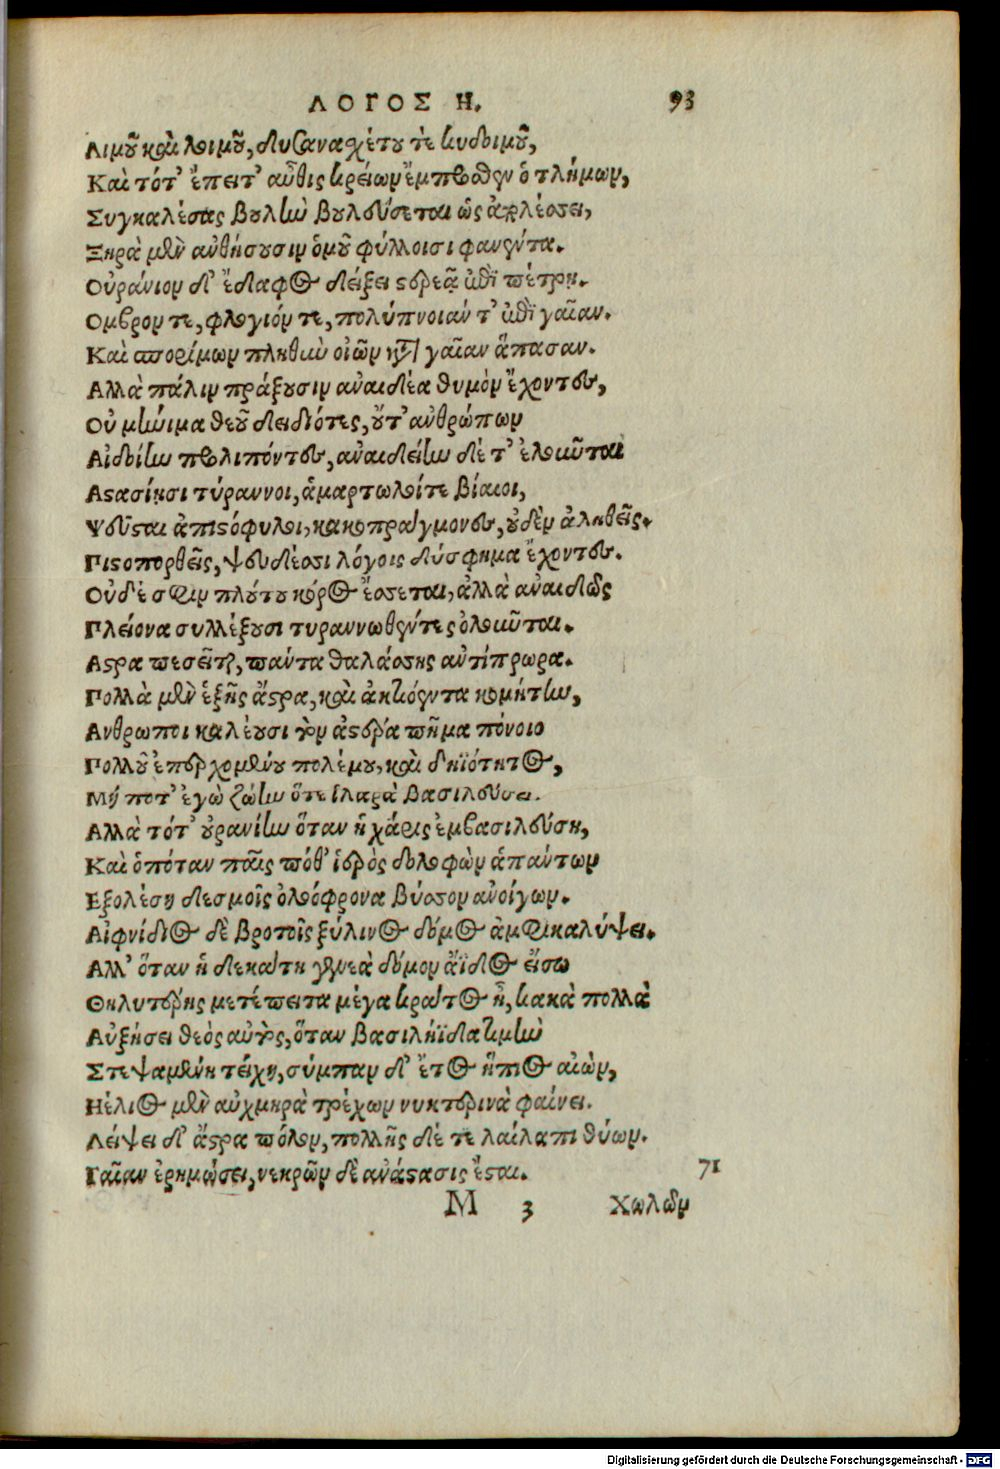 ΛΟΓΟΣ Η. 93
Λιμοῦ καὶ λοιμοῦ, δυσανασχέτου τε κυδοιμοῦ,
Καὶ τότ' ἔπειτ' αὖθις κρείων ἔμπροσθεν ὁ τλήμων,
Συγκαλέσας βουλὴν βουλεύσεται ὡς ἀπλέσσει,
Ξηρὰ μὲν ἀνθήσουσιν ὁμοῦ φύλλοισι φανέντα.
Οὐράνιον δ' ἔδαφος δείξει στερεᾷ ἐπὶ πέτρῃ.
Ομβρον τε, φλογιόν τε, πολύπνοιάν τ' ἐπὶ γαῖαν.
Καὶ σπορίμων πληθὺν οἰῶν κατὰ γαῖαν ἅπασαν.
Αλλὰ πάλιν πράξουσιν ἀναιδέα θυμὸν ἔχοντες,
Οὐ μήνιμα θεοῦ δειδιότες, οὔτ' ἀνθρώπων
Αἰδοίην προλιπόντες, ἀναιδείην δέ τ' ἑλοῦνται
Αστασίῃσι τύραννοι, ἁμαρτωλοίτε βίαιοι,
Ψεῦσται ἀπιστόφυλοι, κακοπράγμονες, οὐδὲν ἀληθεῖς.
Πιστοπορθεῖς, ψευδέοσι λόγοις δύσφημα ἔχοντες.
Οὐδέ σφιν πλούτου κόρος ἔσσεται, ἀλλὰ ἀναιδῶς
Πλείονα συλλέξουσι τυραννωθέντες ὀλοῦνται.
Αστρα πεσεῖται, πάντα θαλάσσης ἀντίπρωρα.
Πολλὰ μὲν ἑξῆς ἄστρα, καὶ ἀκτιόεντα κομήτην,
Ανθρωποι καλέουσι τὸν ἀστέρα πῆμα πόνοιο
Πολλοῦ ἐπερχομένου πολέμου, καὶ δηϊότητος,
Μή ποτ' ἐγὼ ζώην ὅτε ἱλαρὰ βασιλεύσει.
Αλλὰ τότ' οὐρανίην ὅταν ἡ χάρις ἐμβασιλεύσῃ,
Καὶ ὁπόταν παῖς πόθ' ἱερὸς δολοφὼν ἁπάντων
Εξολέσῃ δεσμοῖς ὀλοόφρονα βύσσον ἀνοίγων.
Αἰφνίδιος δὲ βροτοῖς ξύλινος δόμος ἀμφικαλύψει.
Αλλ' ὅταν ἡ δεκάτη γενεὰ δόμον ἄϊδος εἴσω
Θηλυτέρης μετέπειτα μέγα κράτος ᾗ, κακὰ πολλὰ
Αὐξήσει θεὸς αὐτὸς, ὅταν βασιληΐδα τιμὴν
Στεψαμένη τεύχῃ, σύμπαν δ' ἔτος ἤπιος αἰὼν,
Ηέλιος μὲν αὐχμηρὰ τρέχων νυκτερινὰ φαίνει.
Λείψει δ' ἄστρα πόλον, πολλῆς δέ τε λαίλαπι θύων.
Γαῖαν ἐρημώσει, νεκρῶν δὲ ἀνάστασις ἔσται.
71
M 3 Χωλῶν
Digitalisierung gefördert durch die Deutsche Forschungsgemeinschaft - DFG